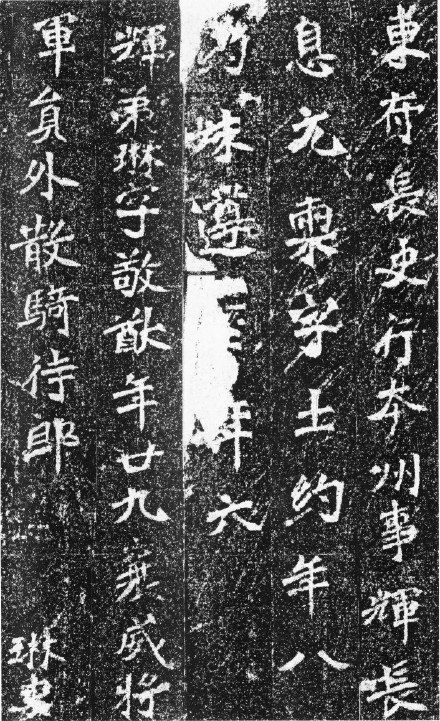 東府長史行本州事 輝長
息元 字士約年八
妹遵 年六
輝弟琳字敬猷年廿九 威將
軍員外散騎侍郎 琳妻